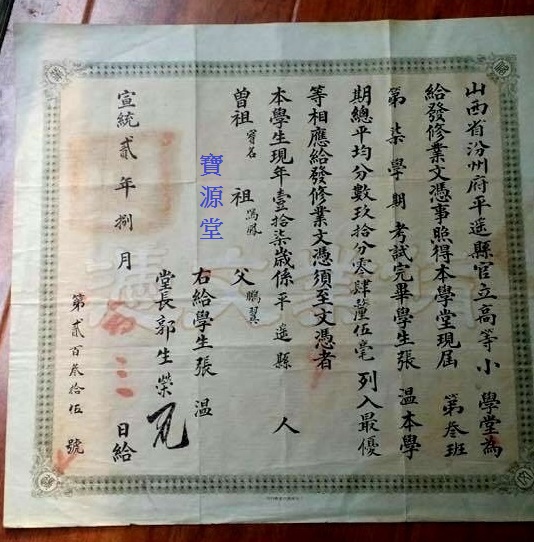 山西省汾州府平遥縣官立高等小學堂為
給發修業文憑事照得本學堂現屆第叁班
第柒學期考試完畢學生張溫本學
期總平均分數玖拾分零肆釐伍毫列入最優
等相應給發修業文憑須至文憑者
本學生現年壹拾柒歲係平遥縣人
曾祖 祖鳳 父鵬翼
右給學生張溫
堂長郭生榮
宣統貳年捌月日給
第貳百叁拾伍號
寶源堂
修業文憑